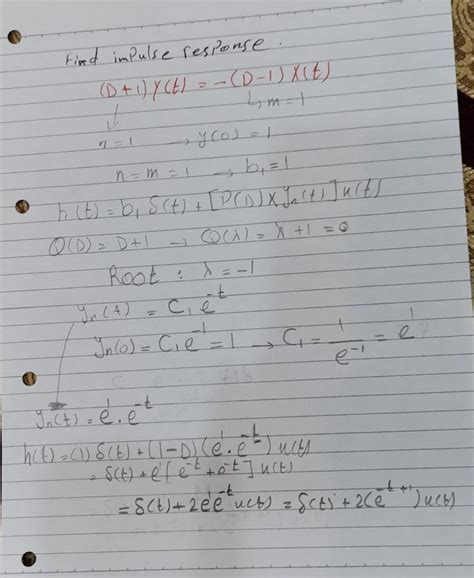 Find impulse response.
(D+1) Y(t) = -(D-1) X(t)
↳ m=1
n=1 → y(0) = 1
n = m = 1 → b₁ = 1
h(t) = b₁ δ(t) + [P(D) × yₙ(t)] u(t)
Q(D) = D+1 → Q(λ) = λ + 1 = 0
Root : λ = -1
yₙ(t) = C₁ e^-t
yₙ(0) = C₁ e^-1 = 1 → C₁ = 1/e^-1 = e^1
yₙ(t) = e^1 . e^-t
h(t) = (1) δ(t) + (1-D) (e^1 . e^-t) u(t)
= δ(t) + e [e^-t + e^-t] u(t)
= δ(t) + 2e^1 e^-t u(t) = δ(t) + 2(e^-t+1) u(t)